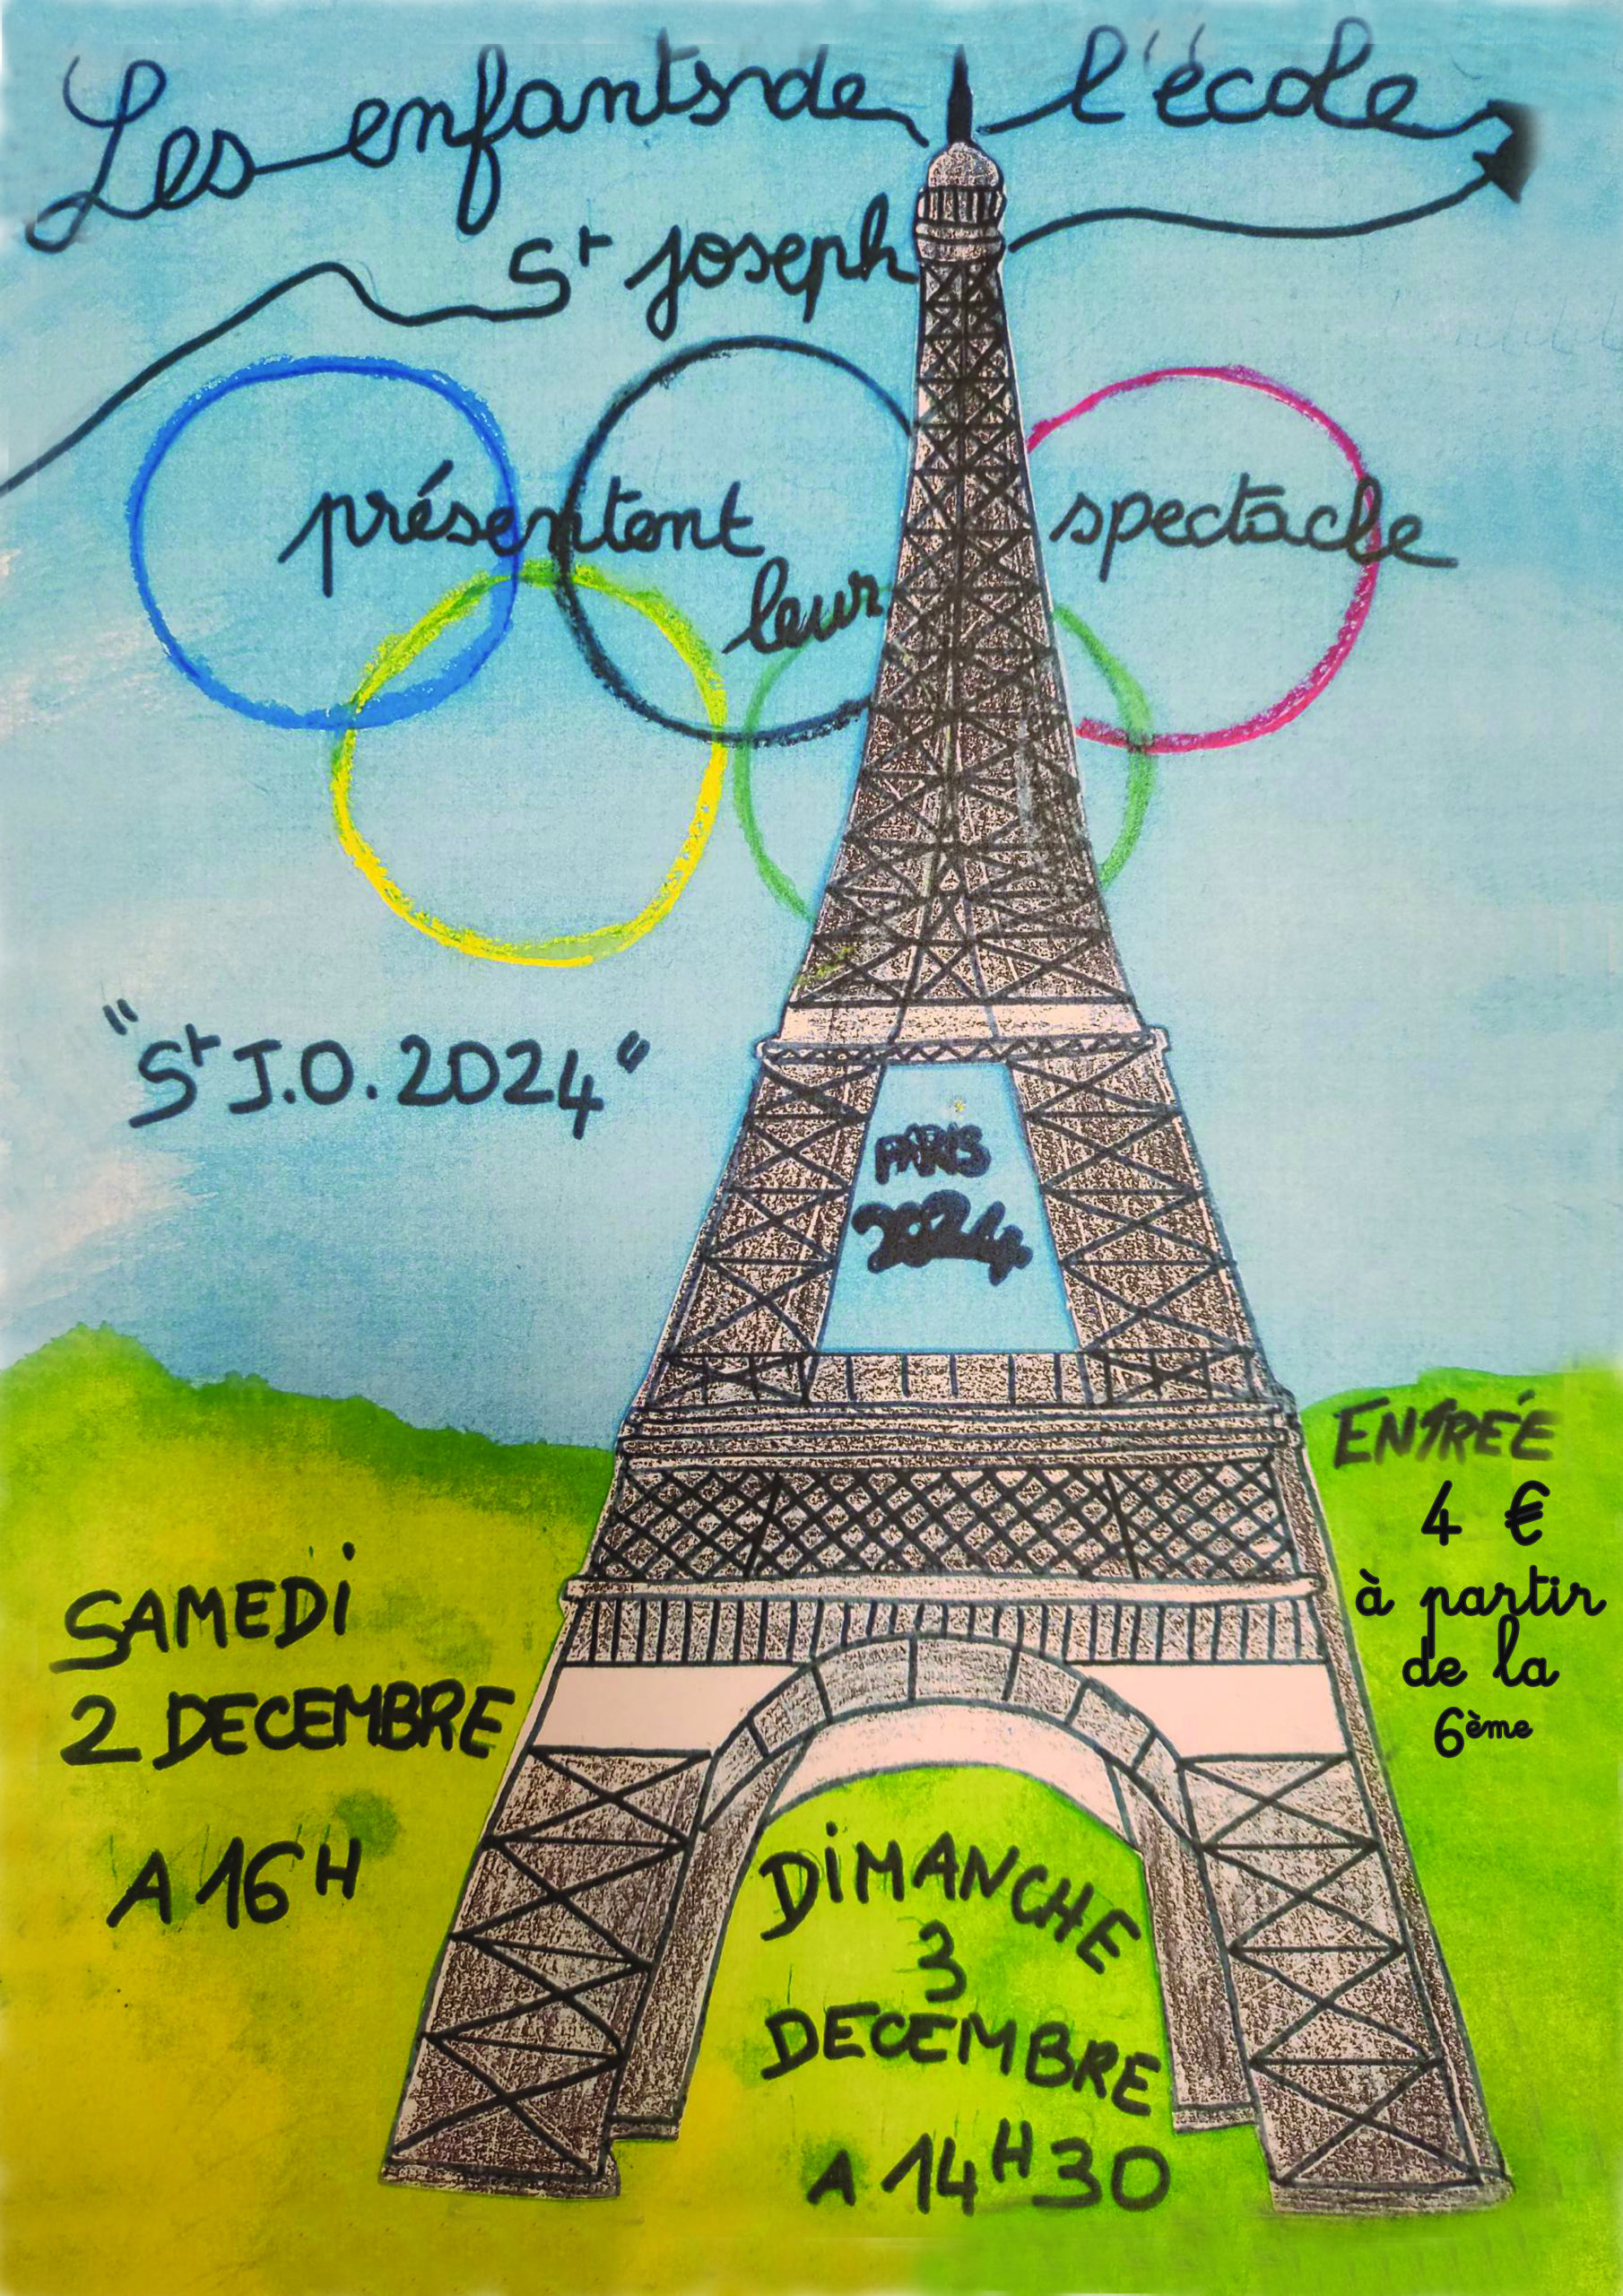 Les enfants de l'école
St Joseph
présentent leur spectacle
"St J.O. 2024"
PARIS
2024
ENTRÉE
4 €
à partir
de la
6ème
SAMEDI
2 DECEMBRE
A 16H
DIMANCHE
3
DECEMBRE
A 14H30